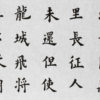 里長征人
未還但使
龍城飛将